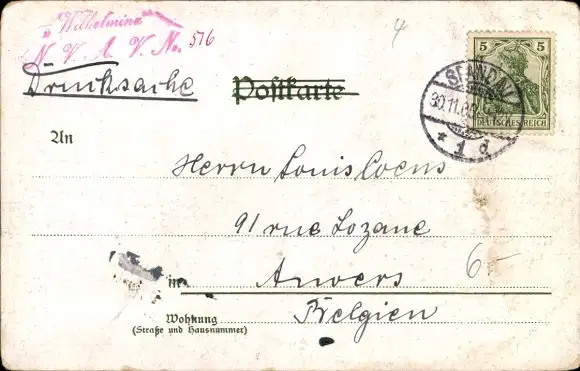 „Wilhelmina"
N. V. A. V. No. 516
4
Drucksache
Postkarte
5 5
DEUTSCHES REICH
30.11.
* 1 d.
An
Herrn Louis Coens
91 rue Lozane
6-
in Anvers
Belgien
Wohnung
(Straße und Hausnummer)